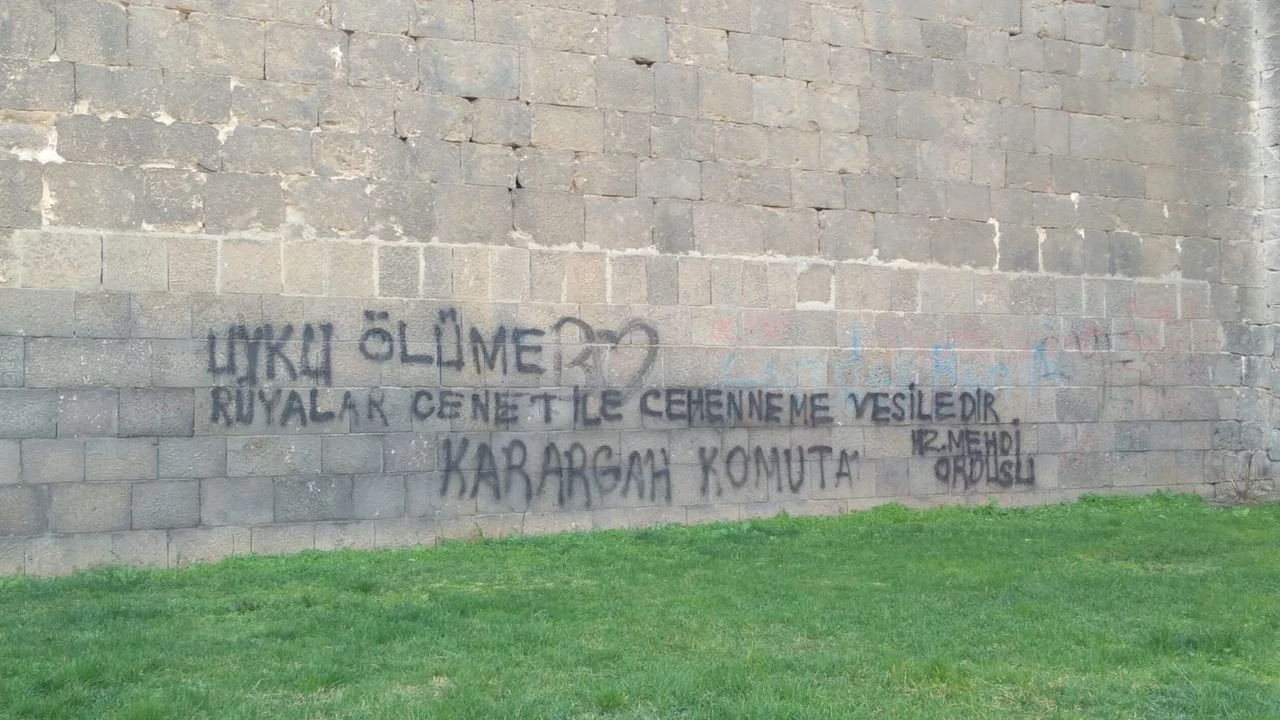 UYKU ÖLÜME
RÜYALAR CENET İLE CEHENNEME VESİLEDİR.
KARARGAH KOMUTA
HZ.MEHDİ
ORDUSU